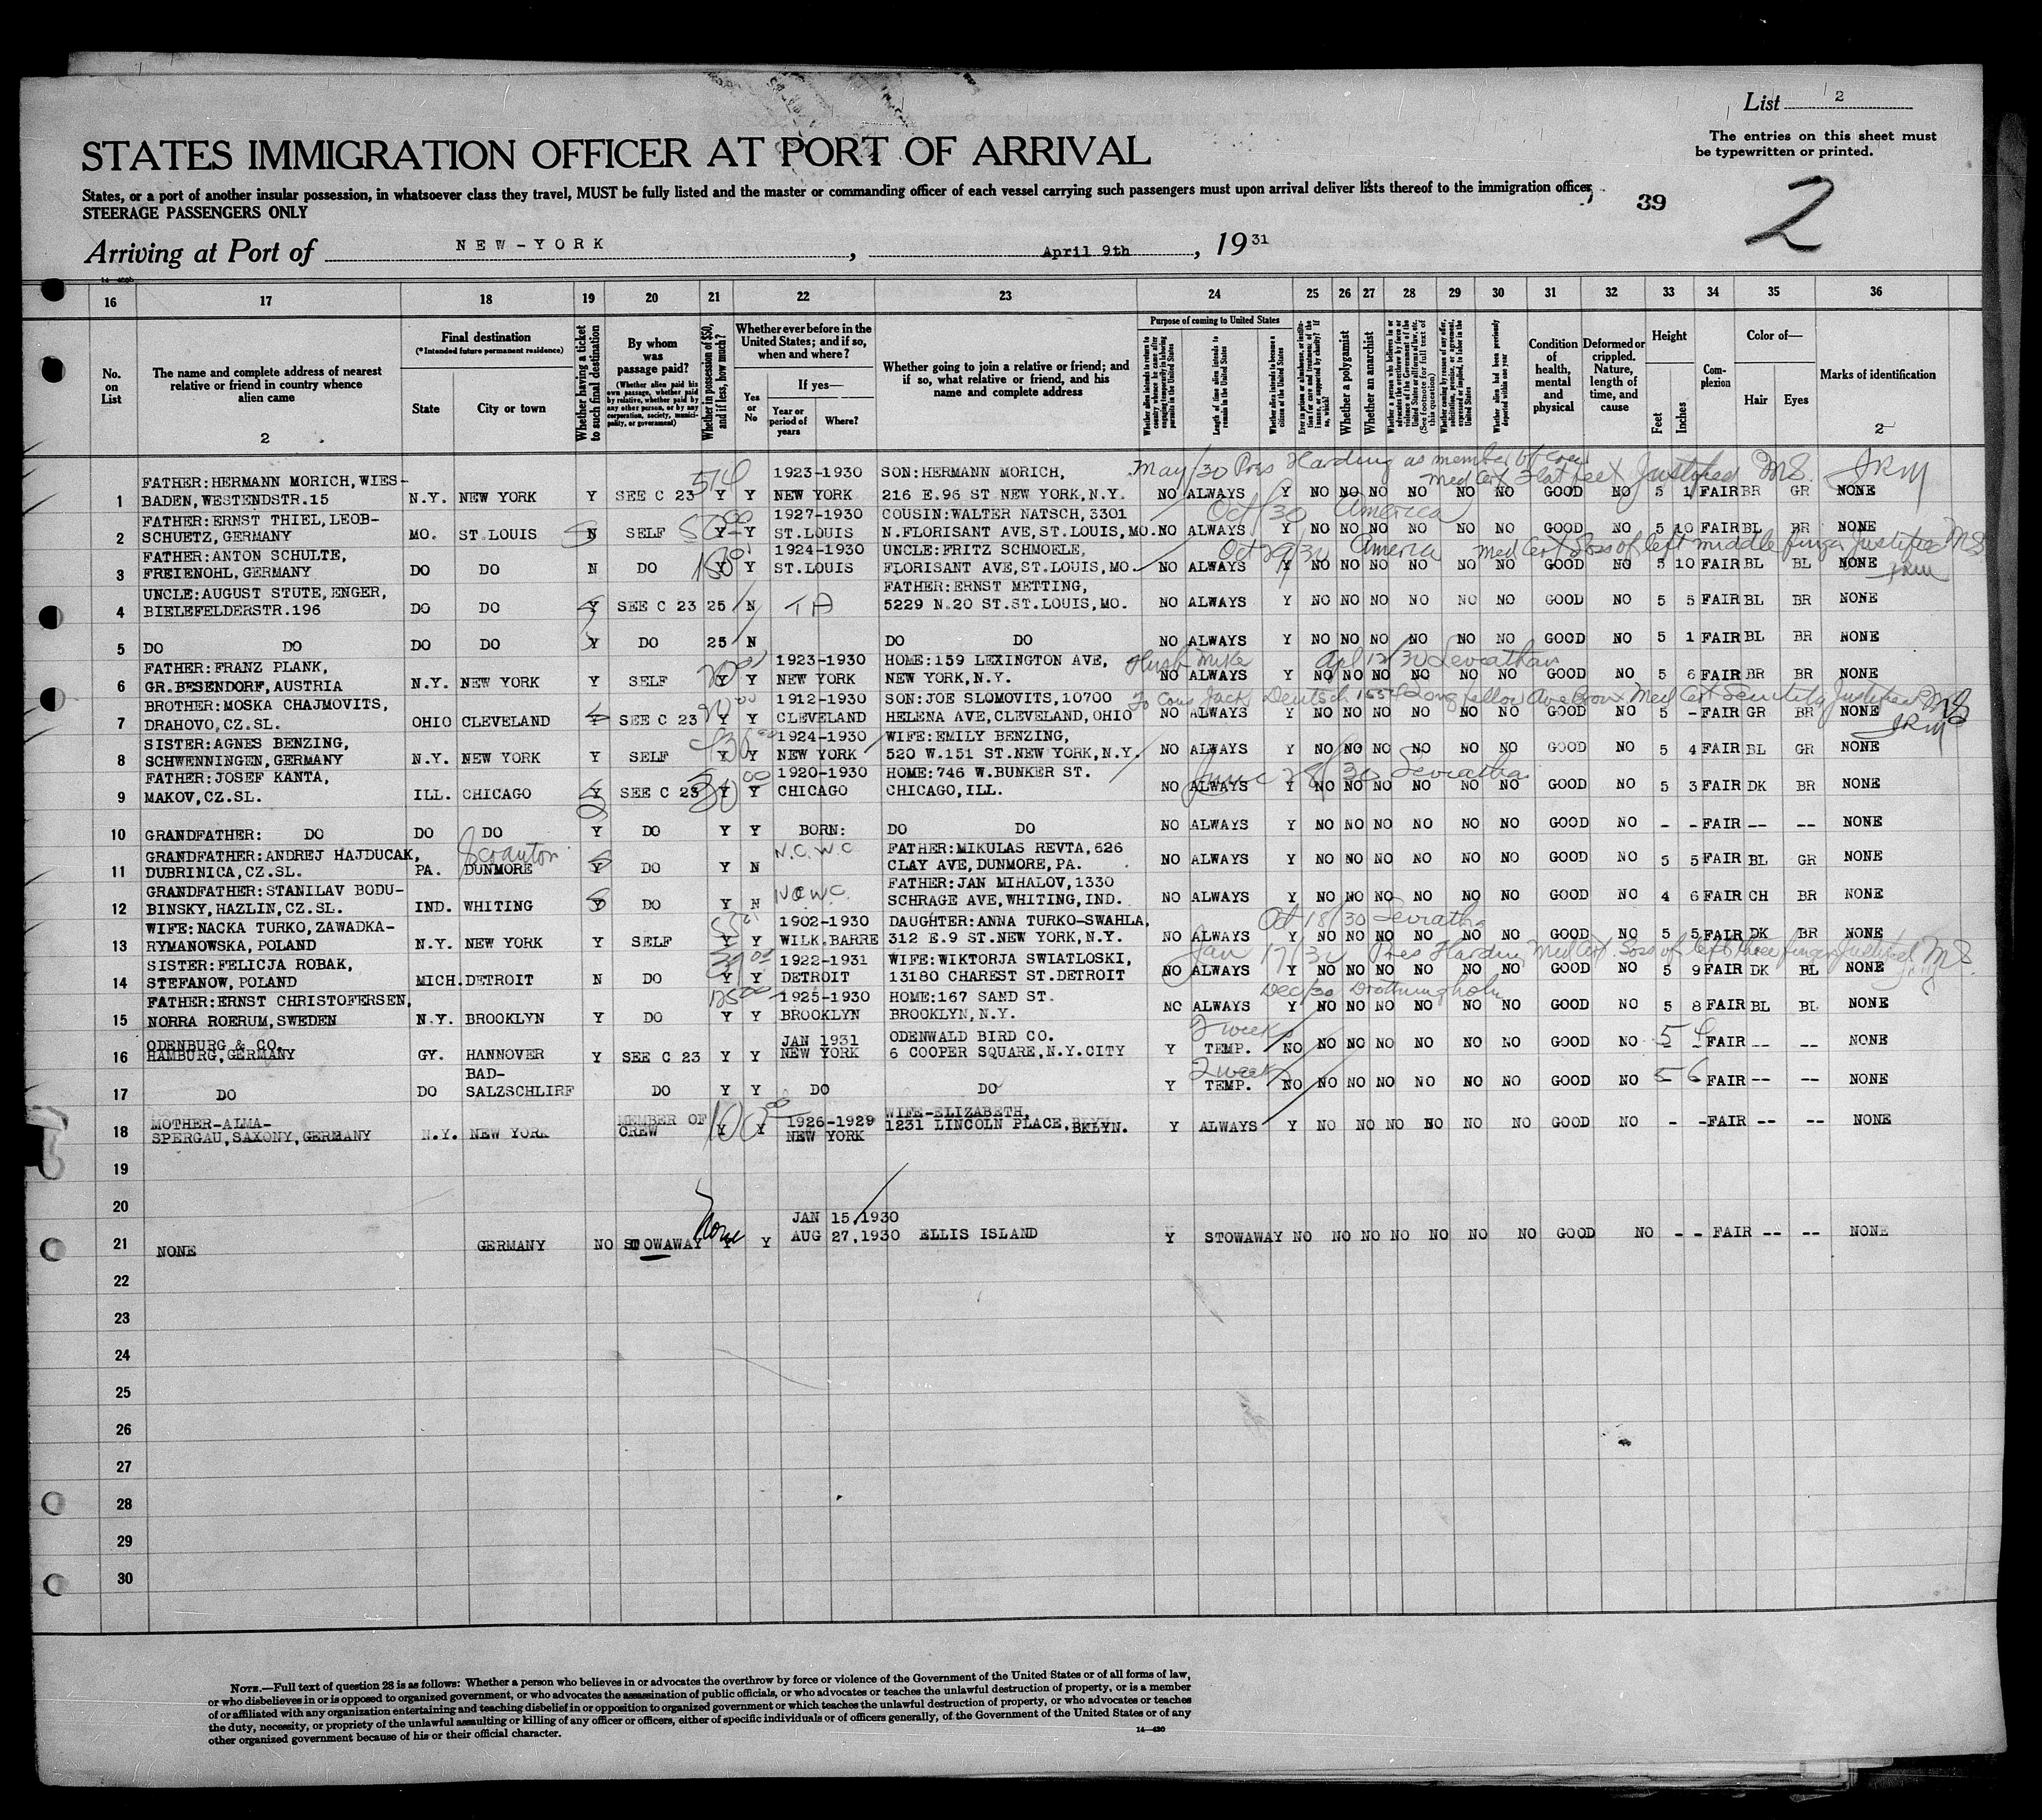 List 2
The entries on this sheet must
be typewritten or printed.
STATES IMMIGRATION OFFICER AT PORT OF ARRIVAL
States, or a port of another insular possession, in whatsoever class they travel, MUST be fully listed and the master or commanding officer of each vessel carrying such passengers must upon arrival deliver lists thereof to the immigration officer
STEERAGE PASSENGERS ONLY
39
2
Arriving at Port of NEW-YORK, April 9th, 1931
16 17 18 19 20 21 22 23 24 25 26 27 28 29 30 31 32 33 34 35 36
No. on List
The name and complete address of nearest relative or friend in country whence alien came
2
Final destination
(*Intended future permanent residence)
State
City or town
Whether having a ticket to such final destination
By whom was passage paid?
(Whether alien paid his own passage, whether paid by relative, whether paid by any other person, or by any corporation, society, municipality, or government)
Whether in possession of $50, and if less, how much?
Whether ever before in the United States; and if so, when and where?
Yes or No
If yes—
Year or period of years
Where?
Whether going to join a relative or friend; and if so, what relative or friend, and his name and complete address
Purpose of coming to United States
Length of time alien intends to remain in the United States
Whether alien intends to become a citizen of the United States
Whether a polygamist
Whether an anarchist
Condition of health, mental and physical
Deformed or crippled. Nature, length of time, and cause
Height
Feet
Inches
Complexion
Color of—
Hair
Eyes
Marks of identification
2
May/30 Pres Harding as member of crew
Med Cert Flat feet Justified MS. JRM
1 FATHER:HERMANN MORICH,WIES-BADEN,WESTENDSTR.15 N.Y. NEW YORK Y SEE C 23 Y Y 1923-1930 NEW YORK SON:HERMANN MORICH, 216 E.96 ST NEW YORK,N.Y. NO ALWAYS Y NO NO NO NO NO NO GOOD NO 5 1 FAIR BR GR NONE
Oct/30 America
2 FATHER:ERNST THIEL,LEOB-SCHUETZ,GERMANY MO. ST.LOUIS N SELF Y Y 1927-1930 ST.LOUIS COUSIN:WALTER NATSCH,3301 N.FLORISANT AVE,ST.LOUIS,MO. NO ALWAYS Y NO NO NO NO NO NO GOOD NO 5 10 FAIR BL BR NONE
Oct 29/30 America Med Cert Loss of left middle finger Justified MS JRM
3 FATHER:ANTON SCHULTE, FREIENOHL,GERMANY DO DO N DO Y Y 1924-1930 ST.LOUIS UNCLE:FRITZ SCHMOELE, FLORISANT AVE,ST.LOUIS,MO. NO ALWAYS Y NO NO NO NO NO NO GOOD NO 5 10 FAIR BL BL NONE
4 UNCLE:AUGUST STUTE,ENGER, BIELEFELDERSTR.196 DO DO Y SEE C 23 25 N FATHER:ERNST METTING, 5229 N.20 ST.ST.LOUIS,MO. NO ALWAYS Y NO NO NO NO NO NO GOOD NO 5 5 FAIR BL BR NONE
5 DO DO DO DO Y DO 25 N DO DO NO ALWAYS Y NO NO NO NO NO NO GOOD NO 5 1 FAIR BL BR NONE
Apl 12/30 Leviathan
6 FATHER:FRANZ PLANK, GR.BESENDORF,AUSTRIA N.Y. NEW YORK Y SELF Y Y 1923-1930 NEW YORK HOME:159 LEXINGTON AVE, NEW YORK,N.Y. NO ALWAYS Y NO NO NO NO NO NO GOOD NO 5 6 FAIR BR BR NONE
To Cous Jack Deutsch Longfellow Ave Bronx Med Cert Senility Justified MS JRM
7 BROTHER:MOSKA CHAJMOVITS, DRAHOVO,CZ.SL. OHIO CLEVELAND SEE C 23 Y Y 1912-1930 CLEVELAND SON:JOE SLOMOVITS,10700 HELENA AVE,CLEVELAND,OHIO NO ALWAYS Y NO NO NO NO NO NO GOOD NO 5 - FAIR GR BR NONE
8 SISTER:AGNES BENZING, SCHWENNINGEN,GERMANY N.Y. NEW YORK Y SELF Y Y 1924-1930 NEW YORK WIFE:EMILY BENZING, 520 W.151 ST.NEW YORK,N.Y. NO ALWAYS Y NO NO NO NO NO NO GOOD NO 5 4 FAIR BL GR NONE
June 28/30 Leviathan
9 FATHER:JOSEF KANTA, MAKOV,CZ.SL. ILL. CHICAGO Y SEE C 23 Y Y 1920-1930 CHICAGO HOME:746 W.BUNKER ST. CHICAGO,ILL. NO ALWAYS Y NO NO NO NO NO NO GOOD NO 5 3 FAIR DK BR NONE
10 GRANDFATHER: DO DO DO Y DO Y Y BORN: DO DO NO ALWAYS Y NO NO NO NO NO NO GOOD NO - - FAIR -- -- NONE
Scranton N.C.W.C
11 GRANDFATHER:ANDREJ HAJDUCAK, DUBRINICA,CZ.SL. PA. DUNMORE Y DO Y N FATHER:MIKULAS REVTA,626 CLAY AVE,DUNMORE,PA. NO ALWAYS Y NO NO NO NO NO NO GOOD NO 5 5 FAIR BL GR NONE
N.C.W.C.
12 GRANDFATHER:STANILAV BODU-BINSKY,HAZLIN,CZ.SL. IND. WHITING Y DO Y N FATHER:JAN MIHALOV,1330 SCHRAGE AVE,WHITING,IND. NO ALWAYS Y NO NO NO NO NO NO GOOD NO 4 6 FAIR CH BR NONE
Oct 18/30 Leviathan
13 WIFE:NACKA TURKO,ZAWADKA-RYMANOWSKA,POLAND N.Y. NEW YORK Y SELF Y Y 1902-1930 WILK.BARRE DAUGHTER:ANNA TURKO-SWAHLA, 312 E.9 ST.NEW YORK,N.Y. NO ALWAYS Y NO NO NO NO NO NO GOOD NO 5 5 FAIR DK BR NONE
Jan 17/31 Pres Harding Med Cert Loss of left three finger Justified MS
14 SISTER:FELICJA ROBAK, STEFANOW,POLAND MICH. DETROIT N DO Y Y 1922-1931 DETROIT WIFE:WIKTORJA SWIATLOSKI, 13180 CHAREST ST.DETROIT NO ALWAYS Y NO NO NO NO NO NO GOOD NO 5 9 FAIR DK BL NONE
Dec/30 Drottningholm
15 FATHER:ERNST CHRISTOFERSEN, NORRA ROERUM,SWEDEN N.Y. BROOKLYN Y DO Y Y 1925-1930 BROOKLYN HOME:167 SAND ST. BROOKLYN,N.Y. NO ALWAYS Y NO NO NO NO NO NO GOOD NO 5 8 FAIR BL BL NONE
2 weeks
16 ODENBURG & CO. HAMBURG,GERMANY GY. HANNOVER Y SEE C 23 Y Y JAN 1931 NEW YORK ODENWALD BIRD CO. 6 COOPER SQUARE,N.Y.CITY Y TEMP. NO NO NO NO NO NO NO GOOD NO 5 4 FAIR -- -- NONE
2 weeks
17 DO DO BAD-SALZSCHLIRF DO Y Y DO DO Y TEMP. NO NO NO NO NO NO NO GOOD NO 5 6 FAIR -- -- NONE
18 MOTHER-ALMA- SPERGAU,SAXONY,GERMANY N.Y. NEW YORK MEMBER OF CREW 100 Y Y 1926-1929 NEW YORK WIFE-ELIZABETH, 1231 LINCOLN PLACE, BKLYN. Y ALWAYS Y NO NO NO NO NO NO GOOD NO - - FAIR -- -- NONE
19
20
21 NONE GERMANY NO STOWAWAY None Y Y JAN 15,1930 AUG 27,1930 ELLIS ISLAND Y STOWAWAY NO NO NO NO NO NO NO GOOD NO - - FAIR -- -- NONE
22
23
24
25
26
27
28
29
30
NOTE.—Full text of question 28 is as follows: Whether a person who believes in or advocates the overthrow by force or violence of the Government of the United States or of all forms of law,
or who disbelieves in or is opposed to organized government, or who advocates the assassination of public officials, or who advocates or teaches the unlawful destruction of property, or is a member
of or affiliated with any organization entertaining and teaching disbelief in or opposition to organized government or which teaches the unlawful destruction of property, or who advocates or teaches
the duty, necessity, or propriety of the unlawful assaulting or killing of any officer or officers, either of specific individuals or of officers generally, of the Government of the United States or of any
other organized government because of his or their official character.
14—430